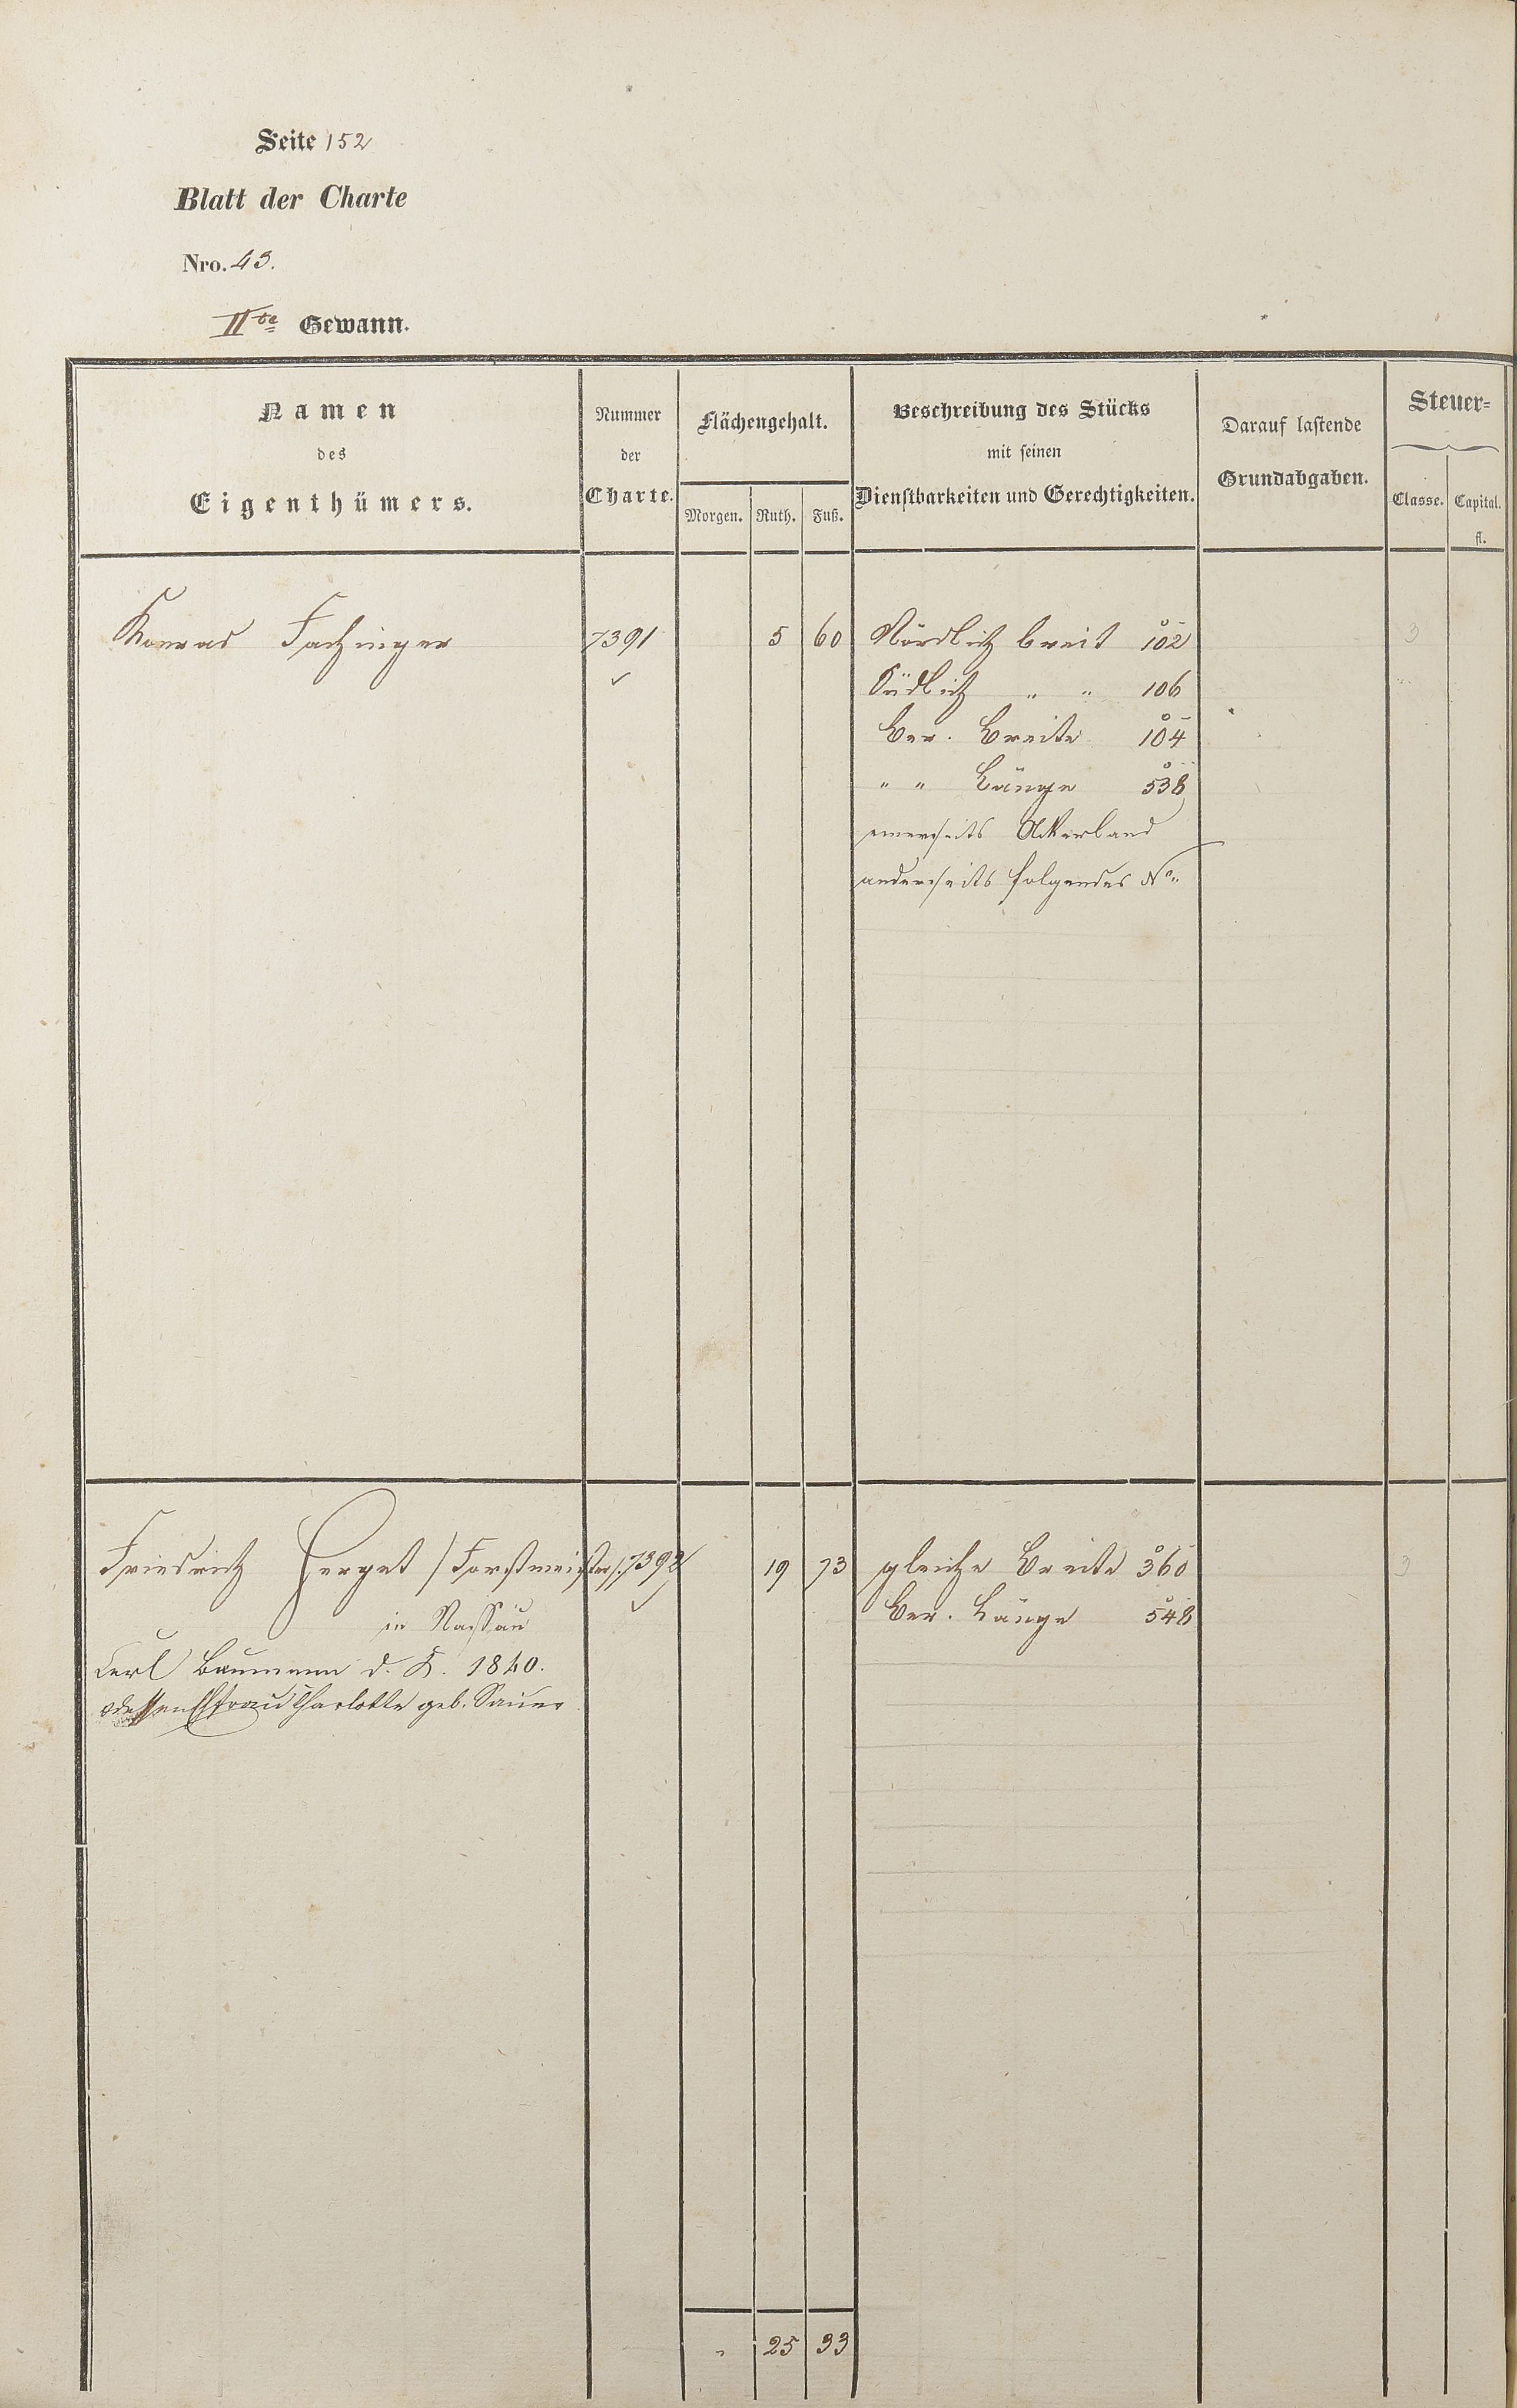 Seite 152
Blatt der Charte
Nro. 43.
IIte Gewann.
Namen
des
Eigenthümers.
Nummer
der
Charte.
Flächengehalt.
Morgen. Ruth. Fuß.
Beschreibung des Stücks
mit seinen
Dienstbarkeiten und Gerechtigkeiten.
Darauf lastende
Grundabgaben.
Steuer=
Classe. Capital.
fl.
Konrad Fachinger 7391 5 60 Nördlich breit 102 3
Südlich " " 106
Ber. Breite 104
" " Länge 538
einerseits Ackerland
anderseits folgendes No.
Friedrich Herget /Forstmeister/. 7392 19 73 gleiche Breite 360 3
in Nassau Ber. Länge 548
Carl Baumann d. K. 1840.
dessen Ehfrau Charlotte geb. Sauer
" 25 33